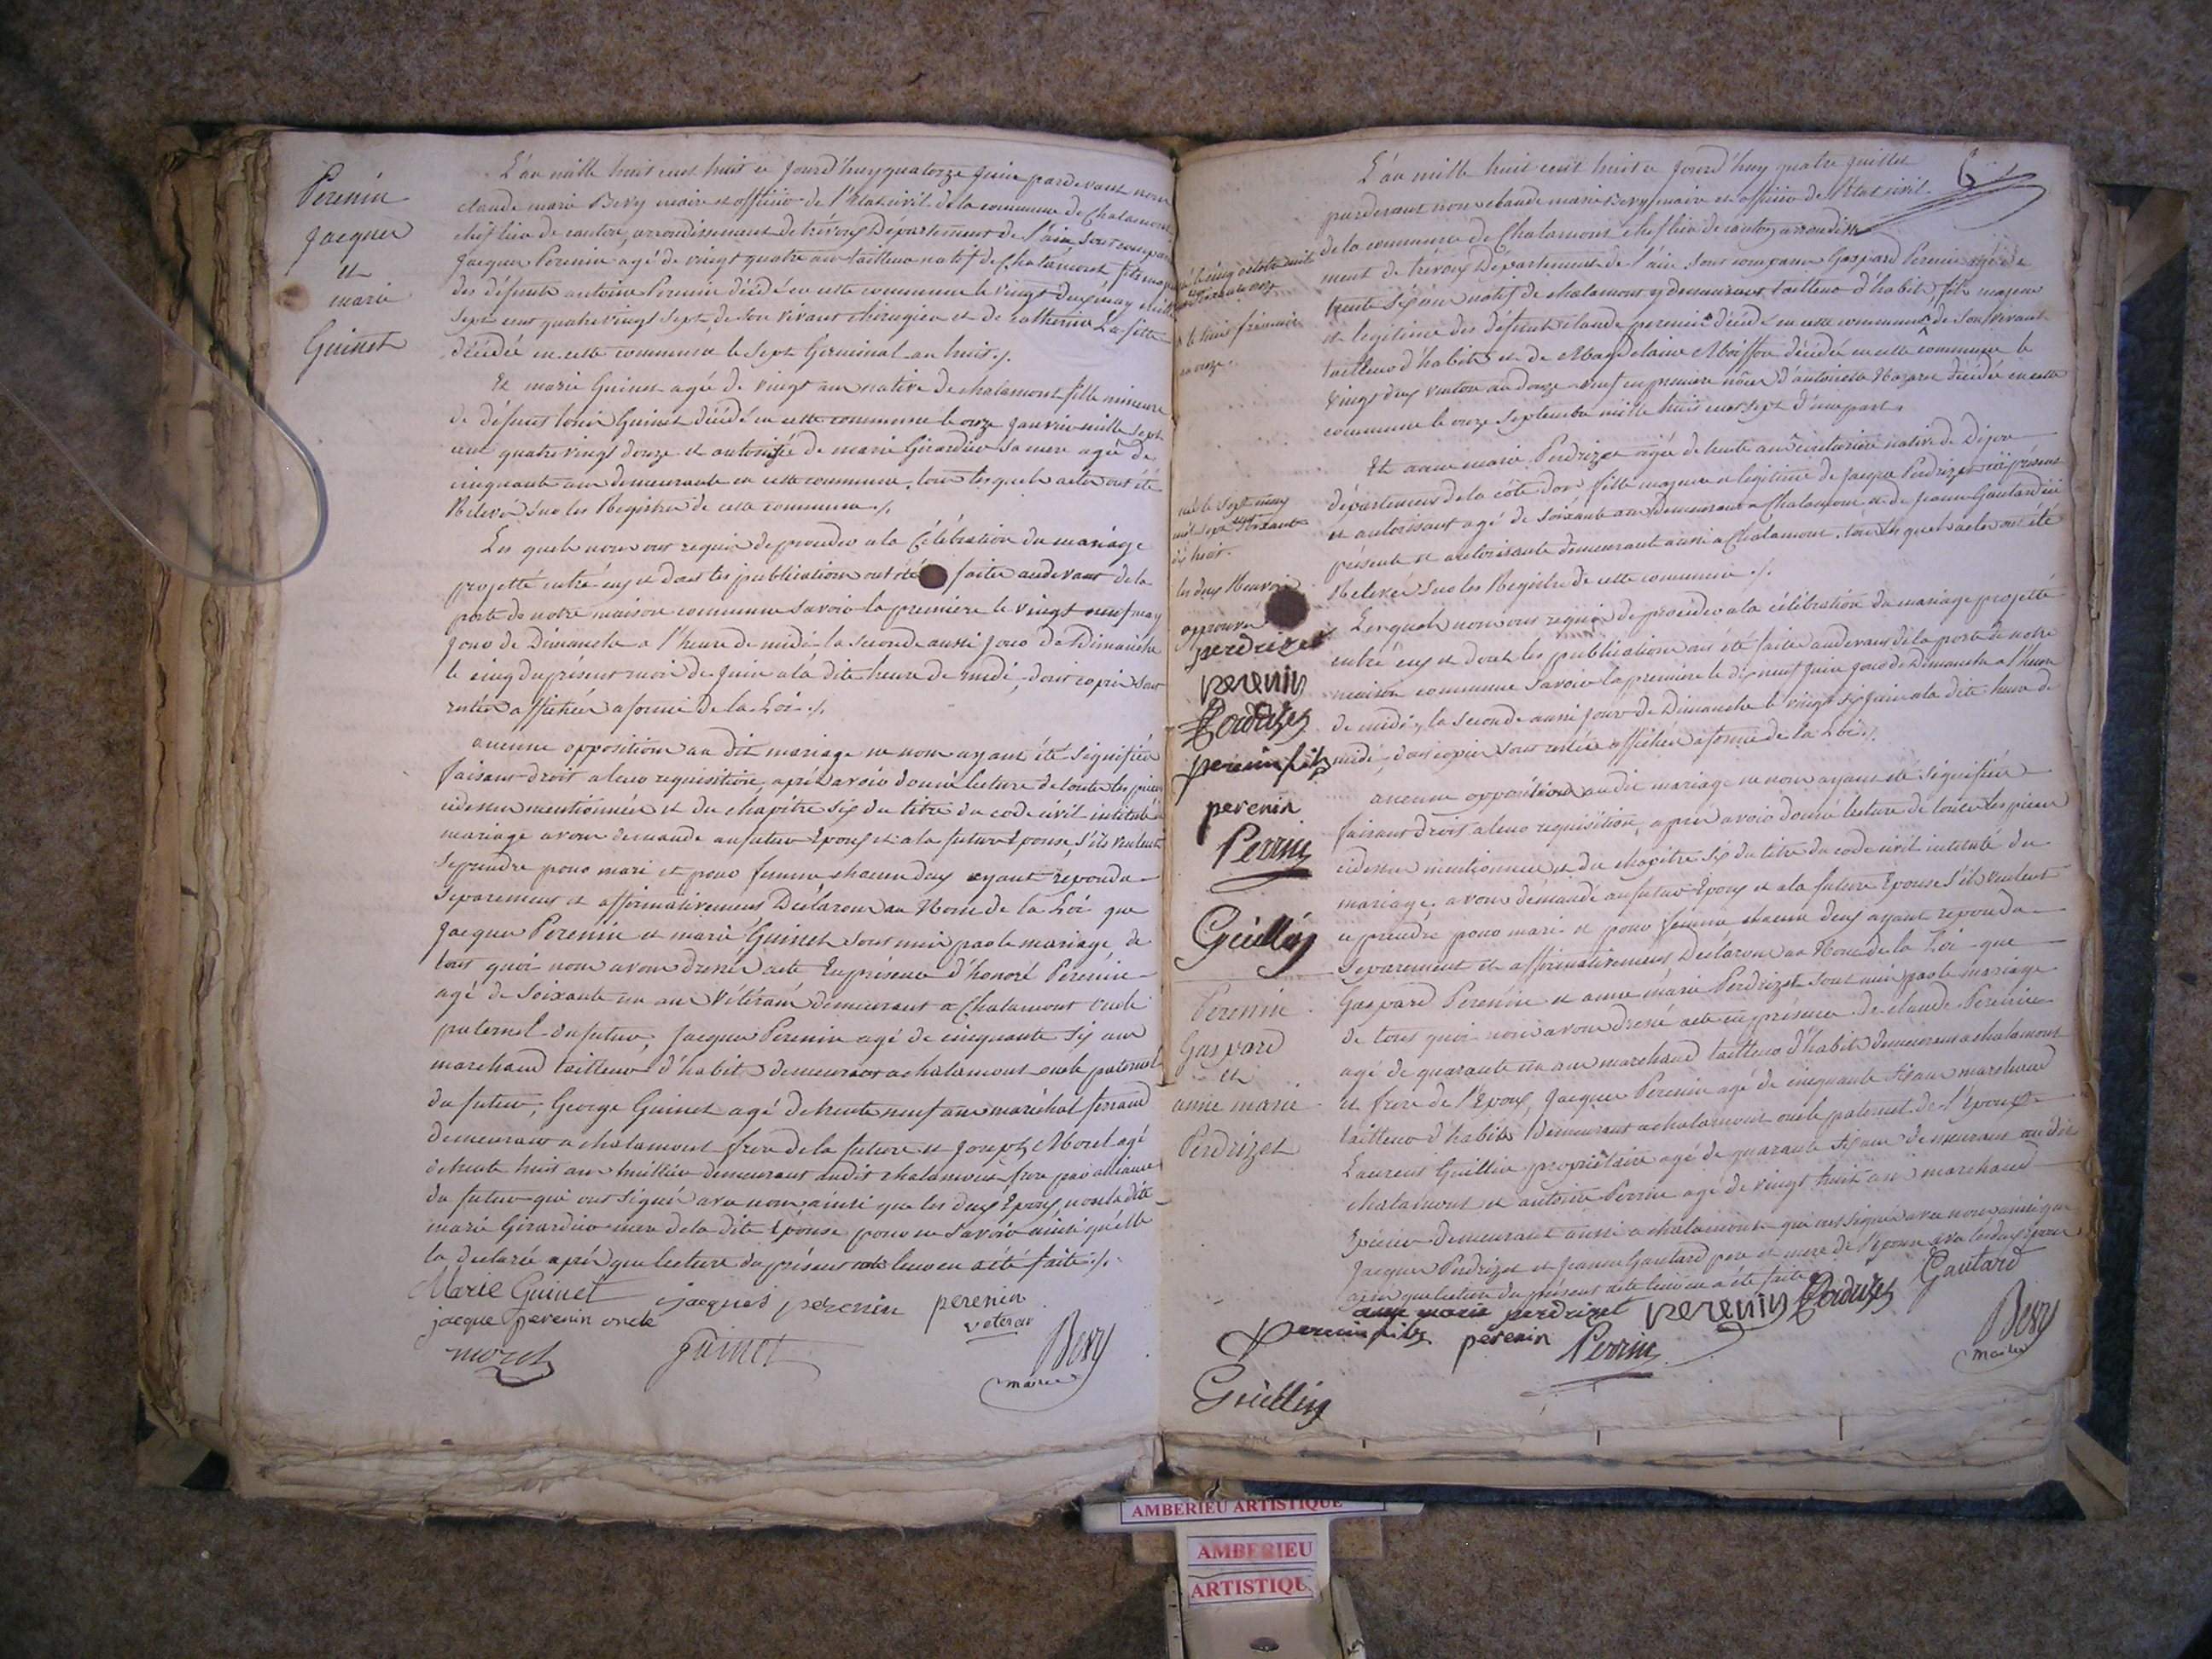 Perenin
Jacques
et
marie
Guinet
L'an mille huit cent huit ce jourd'huy quatorze juin pardevant nous
claude marie Bevy maire et officier de l'Etat civil de la commune de Chalamont
chef lieu de canton, arrondissement de trévoux Département de l'ain, sont comparu
Jacques Perenin agé de vingt quatre ans tailleur natif de Chalamont fils majeur
des défunts antoine Perenin décédé en cette commune le vingt deux may mille
sept cent quatre vingt sept, de son vivant chirugien et de catherine
décédée en cette commune le sept Germinal an huit ./.
Et marie Guinet agée de vingt ans native de chalamont fille mineure
de défunt louis Guinet décédé en cette commune le onze janvier mille sept
cent quatre vingt douze et autorisée de marie Girardier sa mere agée de
cinquante ans demeurante en cette commune, tous lesquels actes ont été
Relevés sur les Registres de cette commune ./.
Les quels nous ont requis de proceder a la Célébration du mariage
projetté entré eux et dont les publications ont été faites audevant de la
porte de notre maison commune savoir la premiere le vingt neuf may
jour de Dimanche a l'heure de midi la seconde aussi jour de Dimanche
le cinq du présent mois de juin a la dite heure de midi, dont copies sont
restées affichées a forme de la Loi ./.
aucune opposition au dit mariage ne nous ayant été signifiée
faisant droit a leur requisition, après avoir donné lecture de toutes les pieces
cidessus mentionnées et du chapitre six du titre du code civil intitulé du
mariage avons demandé au futur Epoux et a la future Epouse, s'ils veulent
se prendre pour mari et pour femme chacun d'eux ayant répondu
separement et affirmativement Déclarons au Nom de la Loi que
Jacques Perenin et marie Guinet sont unis par le mariage, de
tout quoi nous avons dressé acte En présence d'honoré Perenin
agé de soixante un ans vétéran demeurant a Chalamont oncle
paternel du futur, Jacques Perenin agé de cinquante six ans
marchand tailleur d'habits demeurant a chalamont oncle paternel
du futur, George Guinet agé de trente neuf ans maréchal ferrand
demeurant a chalamont frere de la future et Joseph Morel agé
de trente huit ans demeurant audit chalamont frere par alliance
du futur qui ont signé avec nous ainsi que les deux Epoux, non la dite
marie Girardier mere de la dite Epouse pour ne savoir ainsi qu'elle
la declaré après que lecture du présent acte leur en a été faite ./.
Marie Guinet jacques perenin perenin
veteran
jacque perenin oncle
morel Guinet Bevy
maire
6
L'an mille huit cent huit ce jourd'huy quatre juillet
pardevant nous claude marie Bevy maire et officier de l'Etat civil
de la commune de Chalamont chef lieu de canton arrondisse
ment de trevoux Département de l'ain. Sont comparu Gaspard Perenin agé de
trente six ans natif de chalamont y demeurant tailleur d'habits, fils majeur
et legitime des défunts claude perenin décédé en cette commune de son vivant
tailleur d'habits et de Magdelaine décédée en cette commune le
vingt deux ventose an douze veuf en premiere nôces d'antoinette décédée en cette
commune le onze septembre mille huit cent sept d'une part.
Et anne marie Perdrizet agée de trente ans couturiere native de Dijon
département de la côte d'or fille majeure et legitime de Jacque Perdrizet ici présent
et autorisant agé de soixante ans demeurant a Chalamont et de jeanne Gautard ici
présente et autorisante demeurant aussi a Chalamont. tous les quels actes ont été
Relevés sur les Registres de cette commune ./.
Les quels nous ont requis de procéder a la célébration du mariage projetté
entré eux et dont les publications ont été faites audevant de la porte de notre
maison commune savoir la premiere le dix neuf juin jour de Dimanche a l'heure
de midi, la seconde aussi jour de Dimanche le vingt six juin a la dite heure de
midi, dont copies sont restées affichées a forme de la Loi ./.
aucune opposition audit mariage ne nous ayant été signifiée
faisant droit a leur requisition, après avoir donné lecture de toutes les pieces
cidessus mentionnées et du chapitre six du titre du code civil intitulé du
mariage, avons demandé au futur Epoux et a la future Epouse s'ils veulent
se prendre pour mari et pour femme chacun deux ayant repondu
separement et affirmativement Declarons au Nom de la Loi que
Gaspard Perenin et anne marie Perdrizet sont unis par le mariage
de tout quoi nous avons dressé acte en présence de claude Perenin
agé de quarante un ans marchand tailleur d'habits demeurant a chalamont
et frere de l'Epoux, Jacques Perenin agé de cinquante six ans marchand
tailleur d'habits demeurant a chalamont oncle paternel de l'Epoux
Laurent Guillin propriétaire agé de quarante six ans demeurant audit
chalamont et antoine Perrin agé de vingt huit ans marchand
Epicier demeurant aussi a chalamont qui ont signé avec nous ainsi que
Jacques Perdrizet et jeanne Gautard pere et mere de l'epouse avec les deux epoux
après que lecture du présent acte leur en a été faite
anne marie perdrizet perenin Perdrizet Gautard
perenin fils perenin Perrin Bevy
maire
Guillin
le huit frimaire
an onze.
né le sept may
mil sept soixante
dix huit.
les deux Renvois
approuvés
perdrizet
perenin
Perdrizet
perenin fils
perenin
Perrin
Guillin
Perenin
Gaspard
et
anne marie
Perdrizet
AMBERIEU ARTISTIQUE
AMBERIEU
ARTISTIQU